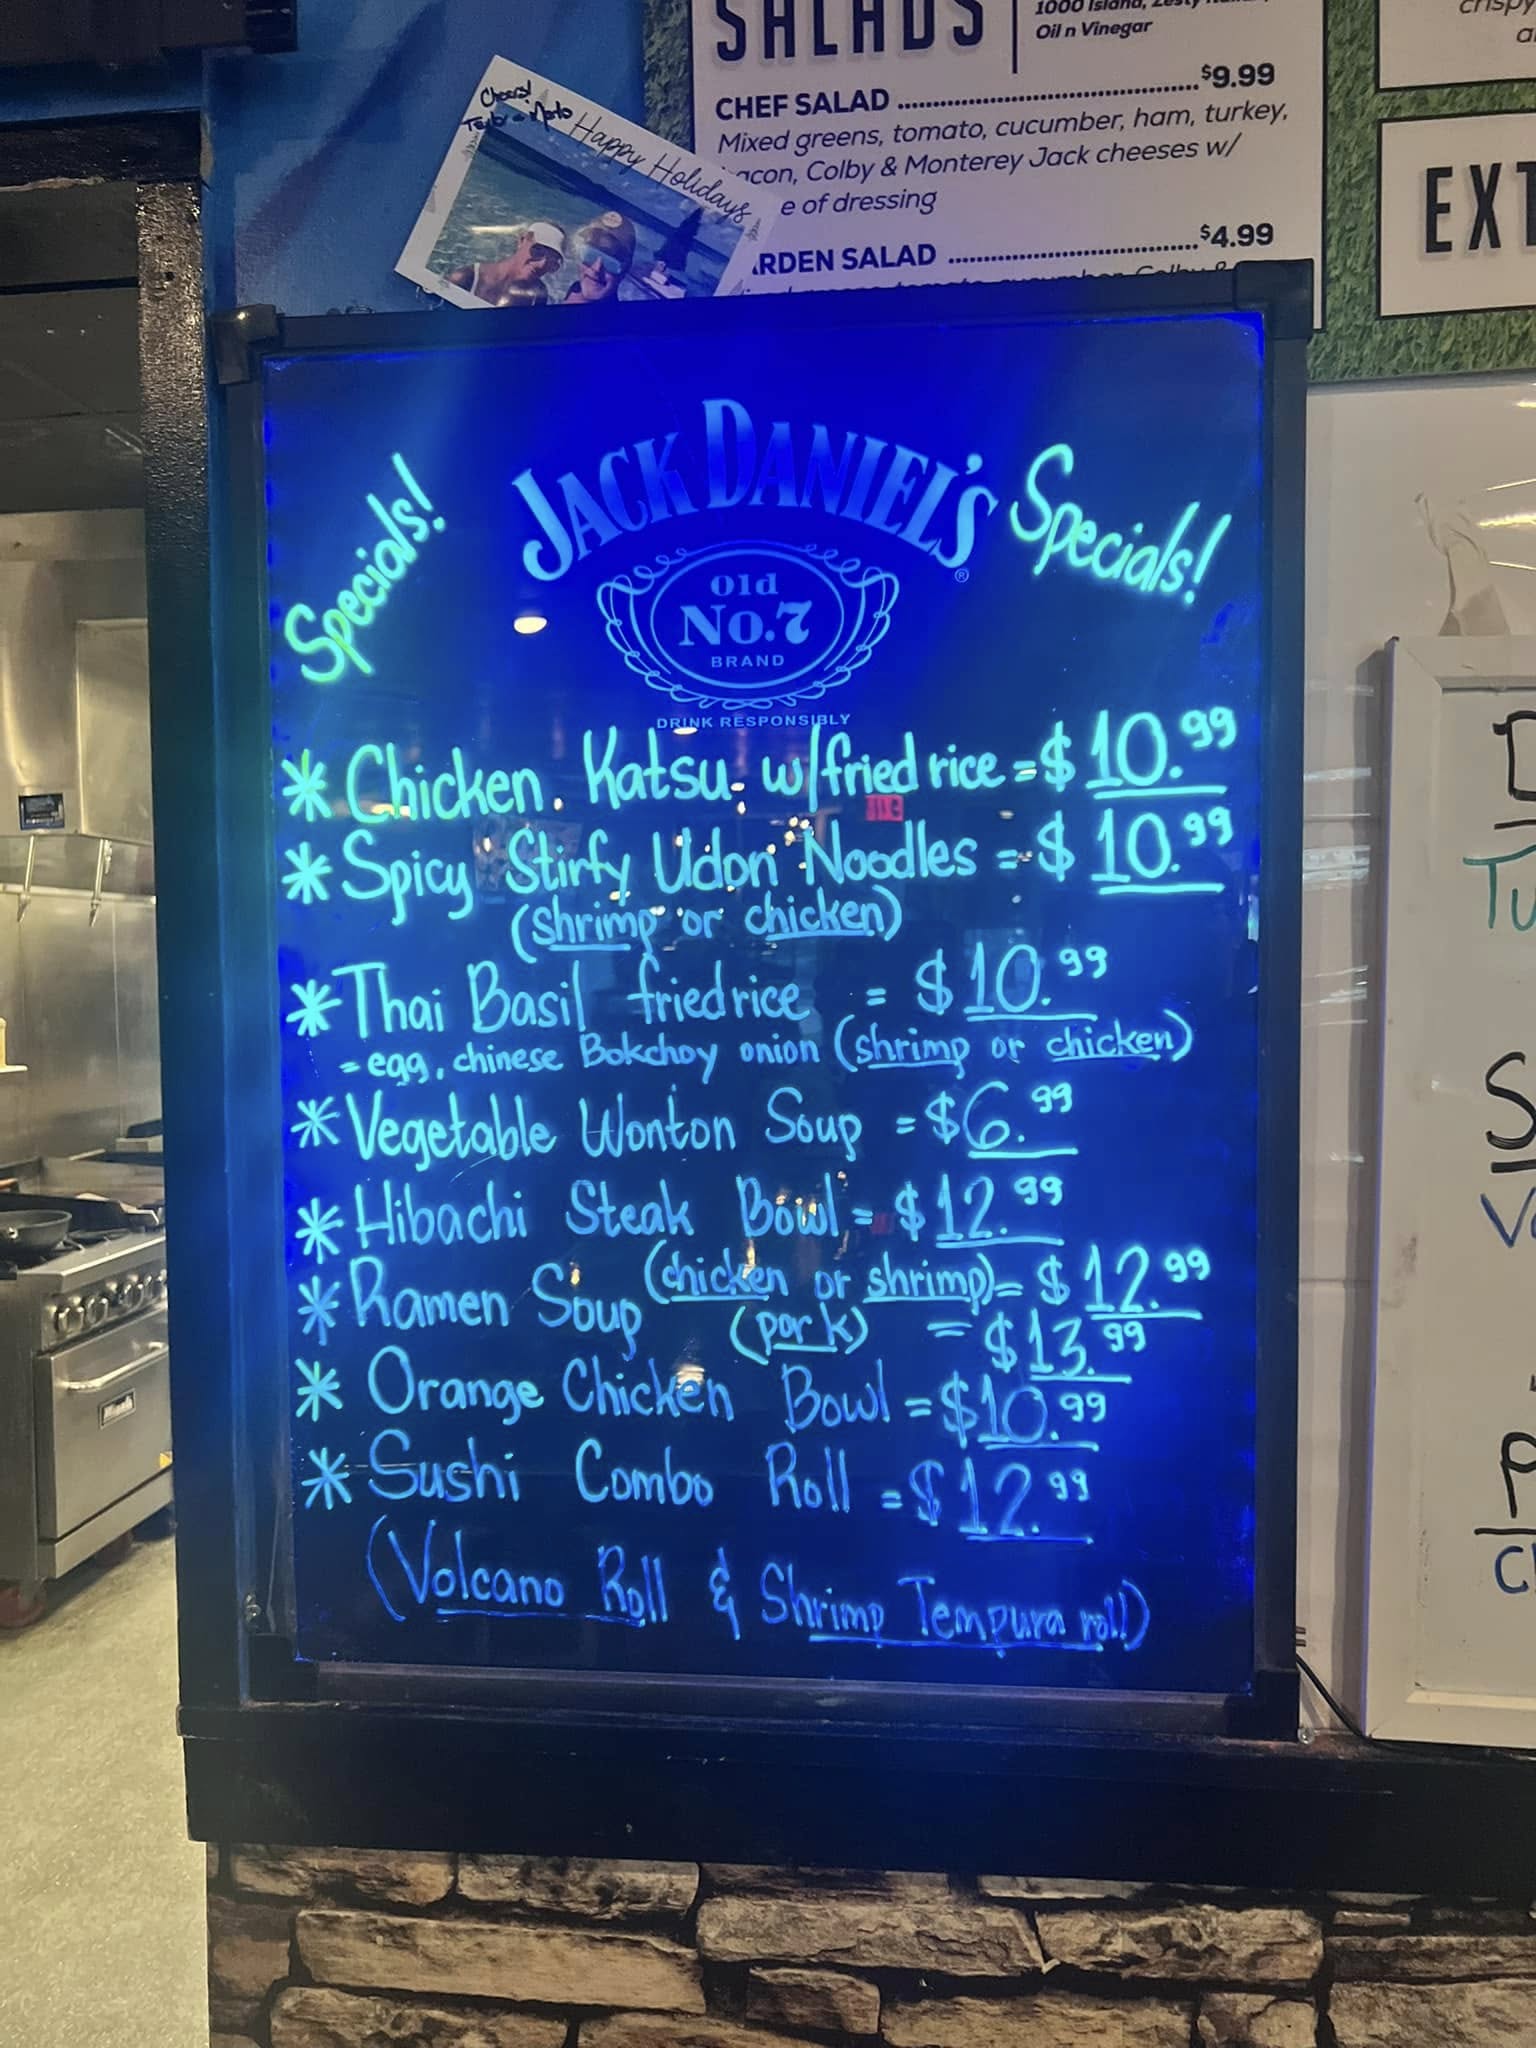 SALADS
1000 Island, Zesty
Oil n Vinegar
CHEF SALAD $9.99
Mixed greens, tomato, cucumber, ham, turkey,
acon, Colby & Monterey Jack cheeses w/
e of dressing
ARDEN SALAD $4.99
crispy
EXT
Cheers!
Happy Holidays
Specials!
JACK DANIEL'S®
Specials!
Old
No.7
BRAND
DRINK RESPONSIBLY
* Chicken Katsu w/fried rice = $10.99
* Spicy Stirfy Udon Noodles = $10.99
(shrimp or chicken)
* Thai Basil fried rice = $10.99
= egg, chinese Bokchoy onion (shrimp or chicken)
* Vegetable Wonton Soup = $6.99
* Hibachi Steak Bowl = $12.99
* Ramen Soup (chicken or shrimp) = $12.99
(pork) = $13.99
* Orange Chicken Bowl = $10.99
* Sushi Combo Roll = $12.99
(Volcano Roll & Shrimp Tempura roll)